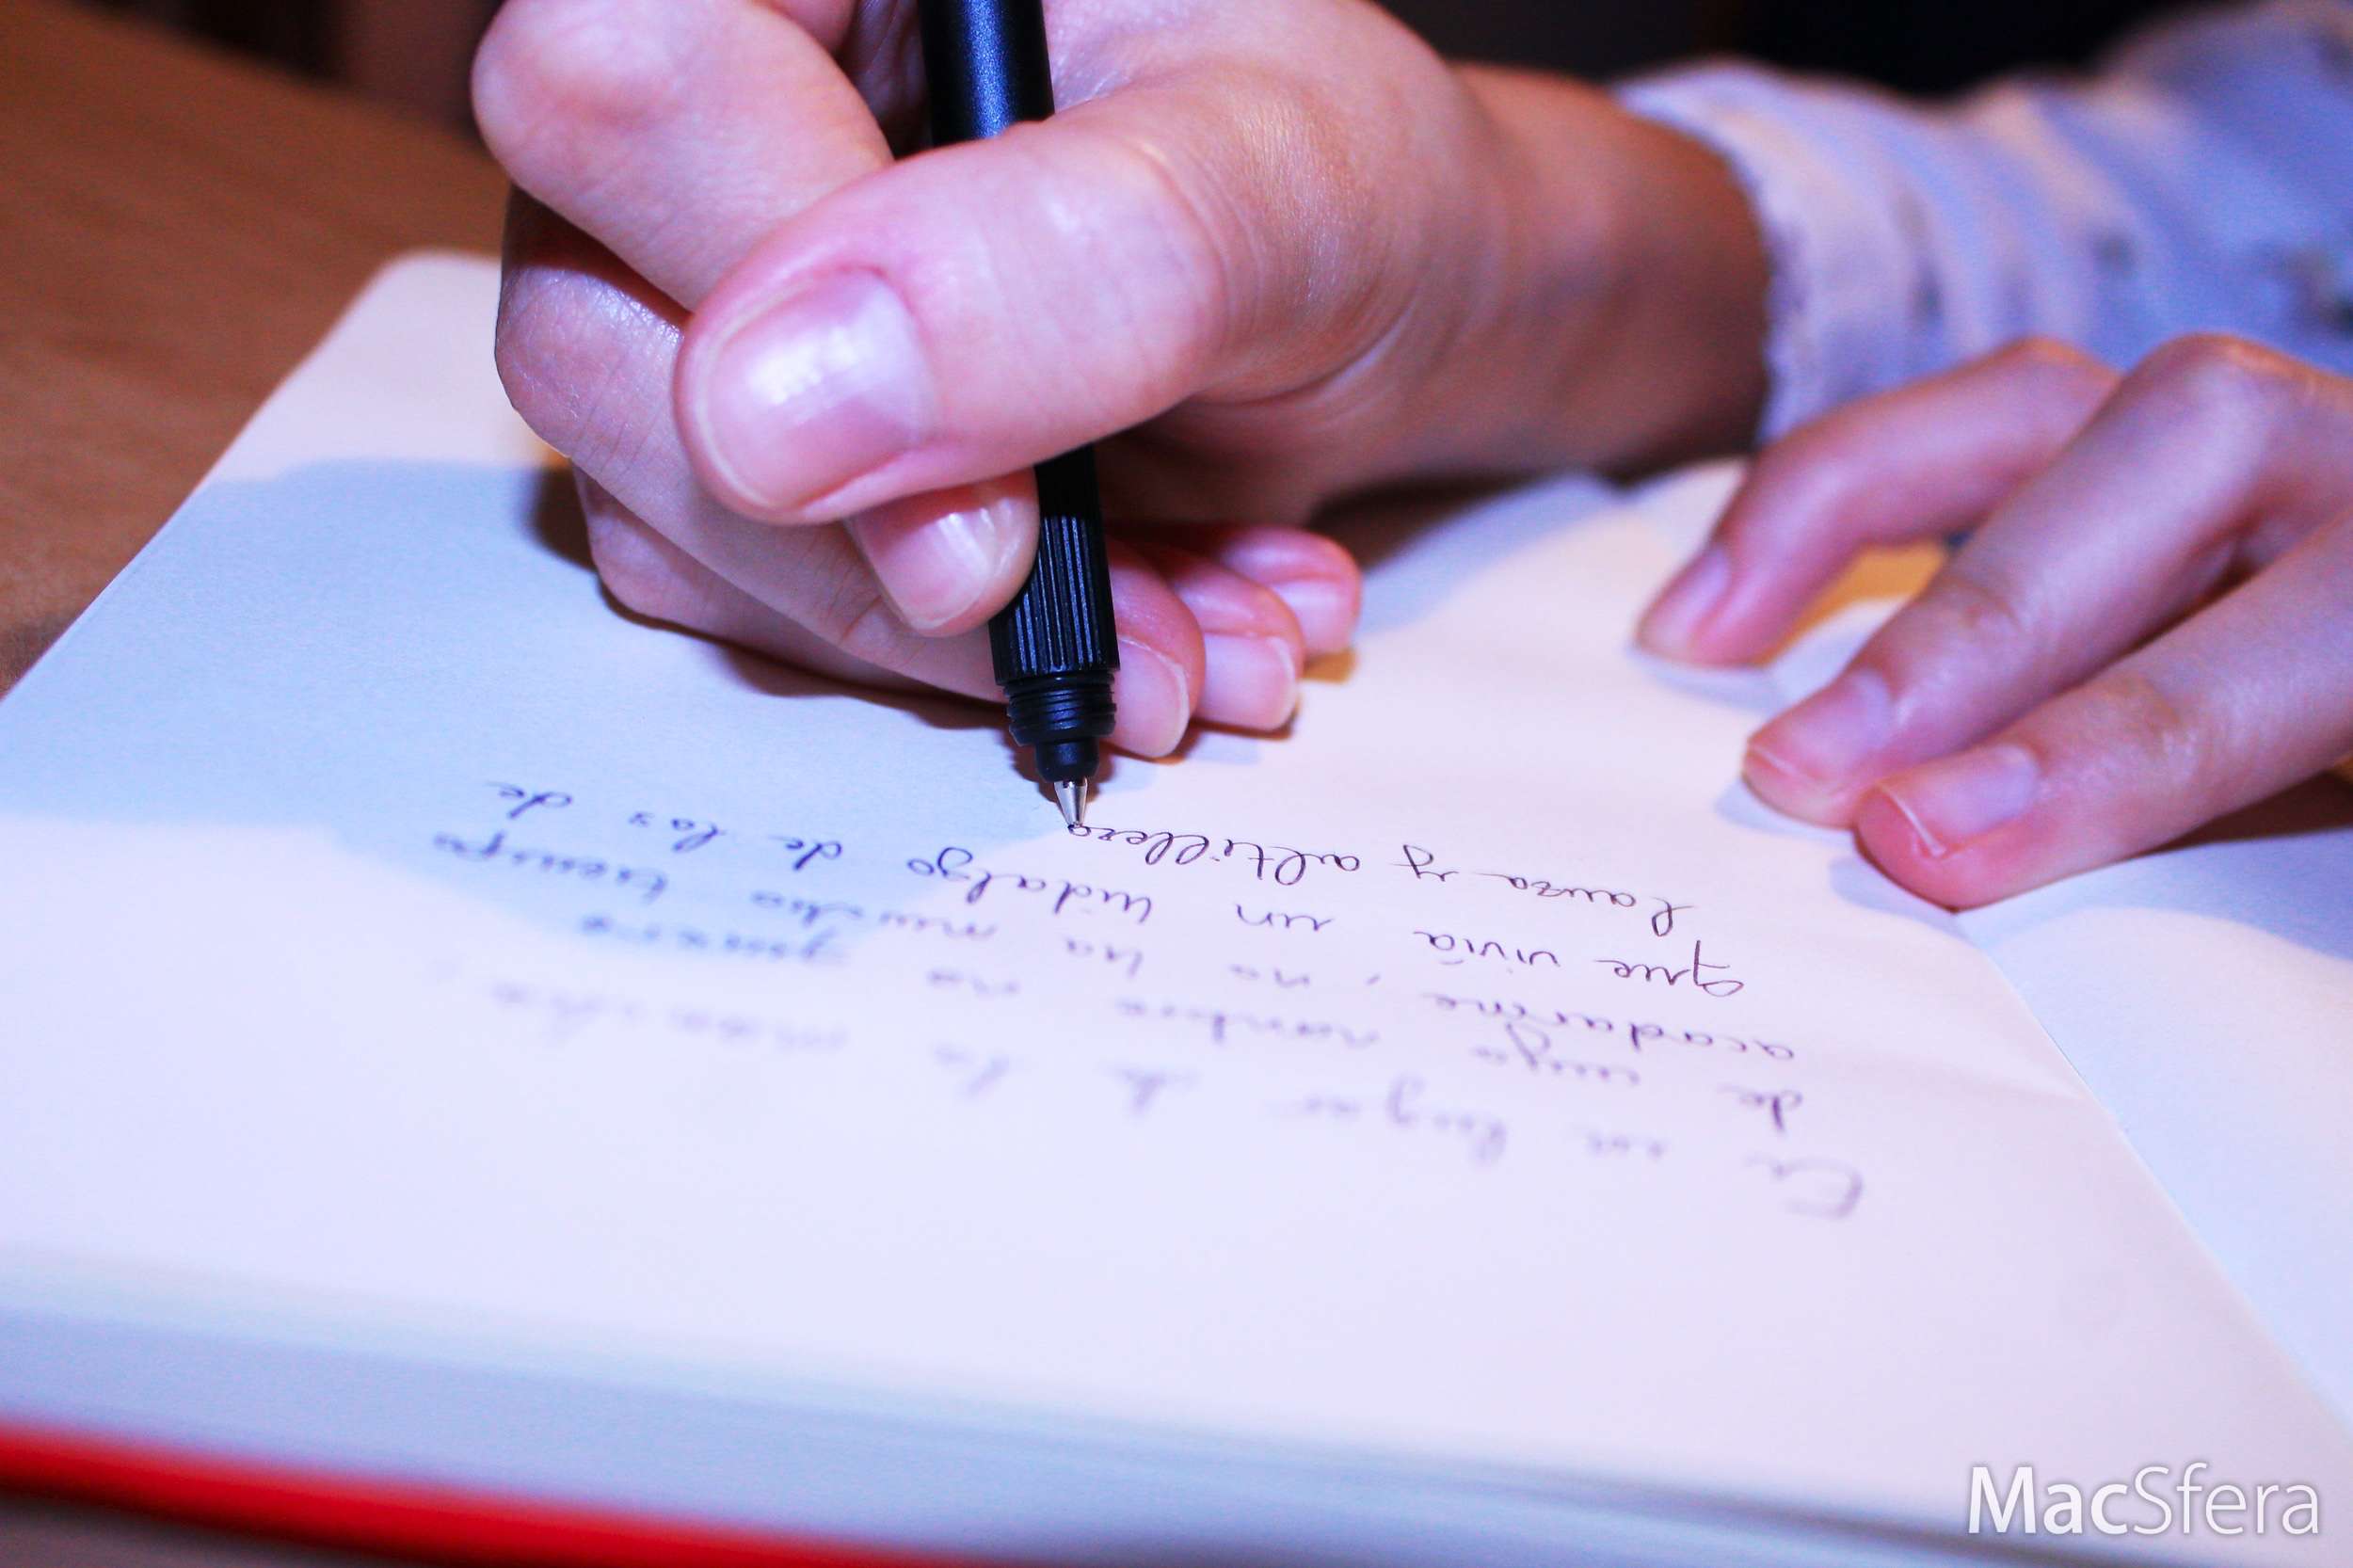 En un lugar de la mancha,
de cuyo nombre no quiero
acordarme, no ha mucho tiempo
que vivía un hidalgo de los de
lanza y altillero
MacSfera